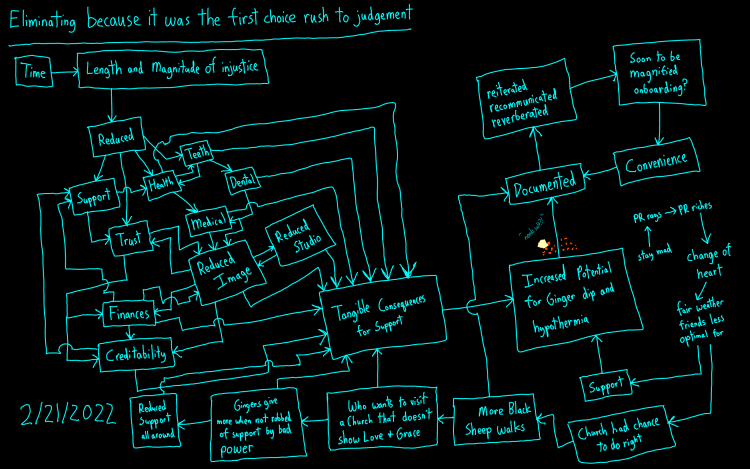 Eliminating because it was the first choice rush to judgement
Time
Length and Magnitude of injustice
Soon to be
magnified
onboarding?
reiterated
recommunicated
reverberated
Reduced
Teeth
Convenience
Support
Health
Dental
Documented
Medical
Reduced
Studio
PR rags
PR riches
Trust
Reduced
Image
stay mad
change of
heart
Increased Potential
for Ginger dip and
hypothermia
Finances
Tangible Consequences
for Support
fair weather
friends less
optimal for
Creditability
Support
2/21/2022
Reduced
Support
all around
Gingers give
more when not robbed
of support by bad
power
Who wants to visit
a Church that doesn't
show Love + Grace
More Black
Sheep Walks
Church had chance
to do right